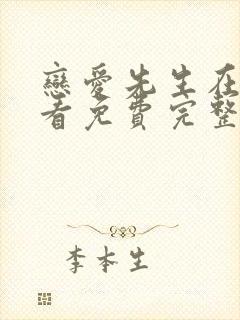 戀愛先生在
看免費完整
李本生